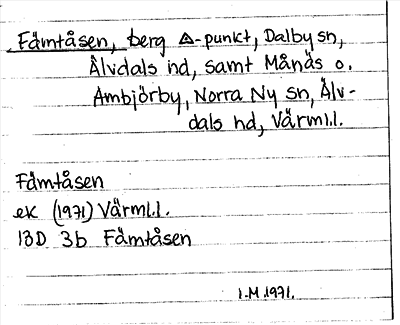 Fämtåsen, berg △-punkt, Dalby sn,
Älvdals hd, samt Månäs o.
Ambjörby, Norra Ny sn, Älv-
dals hd, Värml.l.
Fämtåsen
ek (1971) Värml.l.
13D 3b Fämtåsen
I.M.1971.